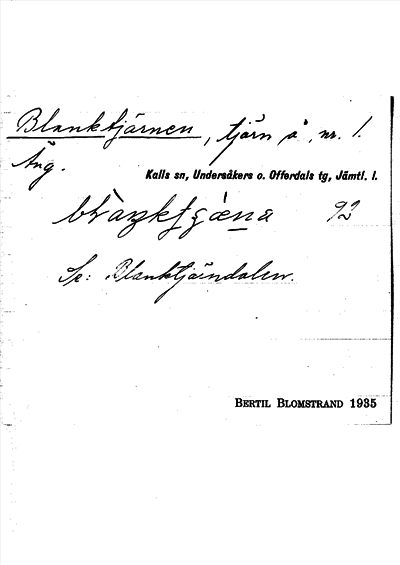 Blanktjärnen, tjärn å nr. 1.
Äng.
Kalls sn, Undersåkers o. Offerdals tg, Jämtl. l.
92
Se: Blanktjärndalen.
BERTIL BLOMSTRAND 1935